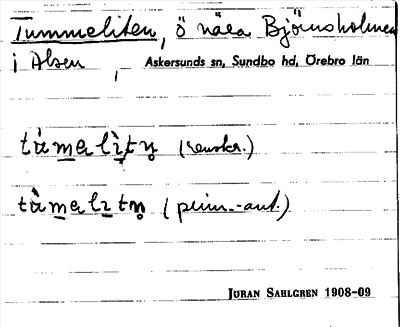 Tummeliten, ö nära Björnsholmen
i Alsen, Askersunds sn, Sundbo hd, Örebro län
tùmalìtn̥ (renskr.)
tùmalitn̥ (prim.-ant.)
JÖRAN SAHLGREN 1908-09